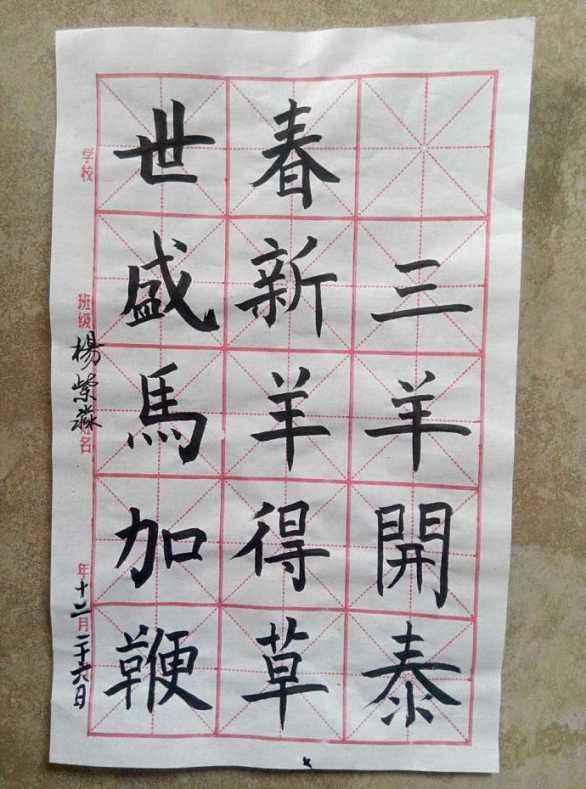 三羊開泰
春新羊得草
世盛馬加鞭
学校
班级
姓名
楊紫淼
年十二月二十六日